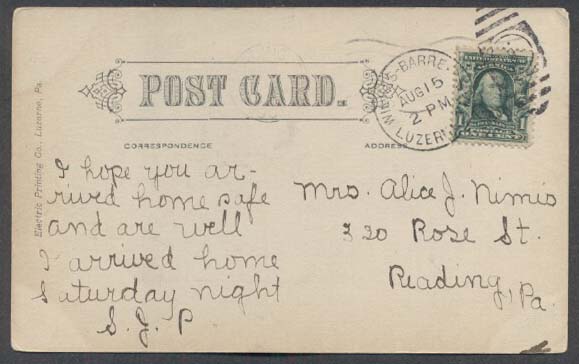 POST CARD.
CORRESPONDENCE
ADDRESS
WILKES-BARRE
AUG 15
2 PM
LUZERNE
Electric Printing Co., Luzerne, Pa.
I hope you ar-
rived home safe
and are well
I arrived home
Saturday night
S. J. P
Mrs. Alice J. Nimis
320 Rose St.
Reading, Pa.